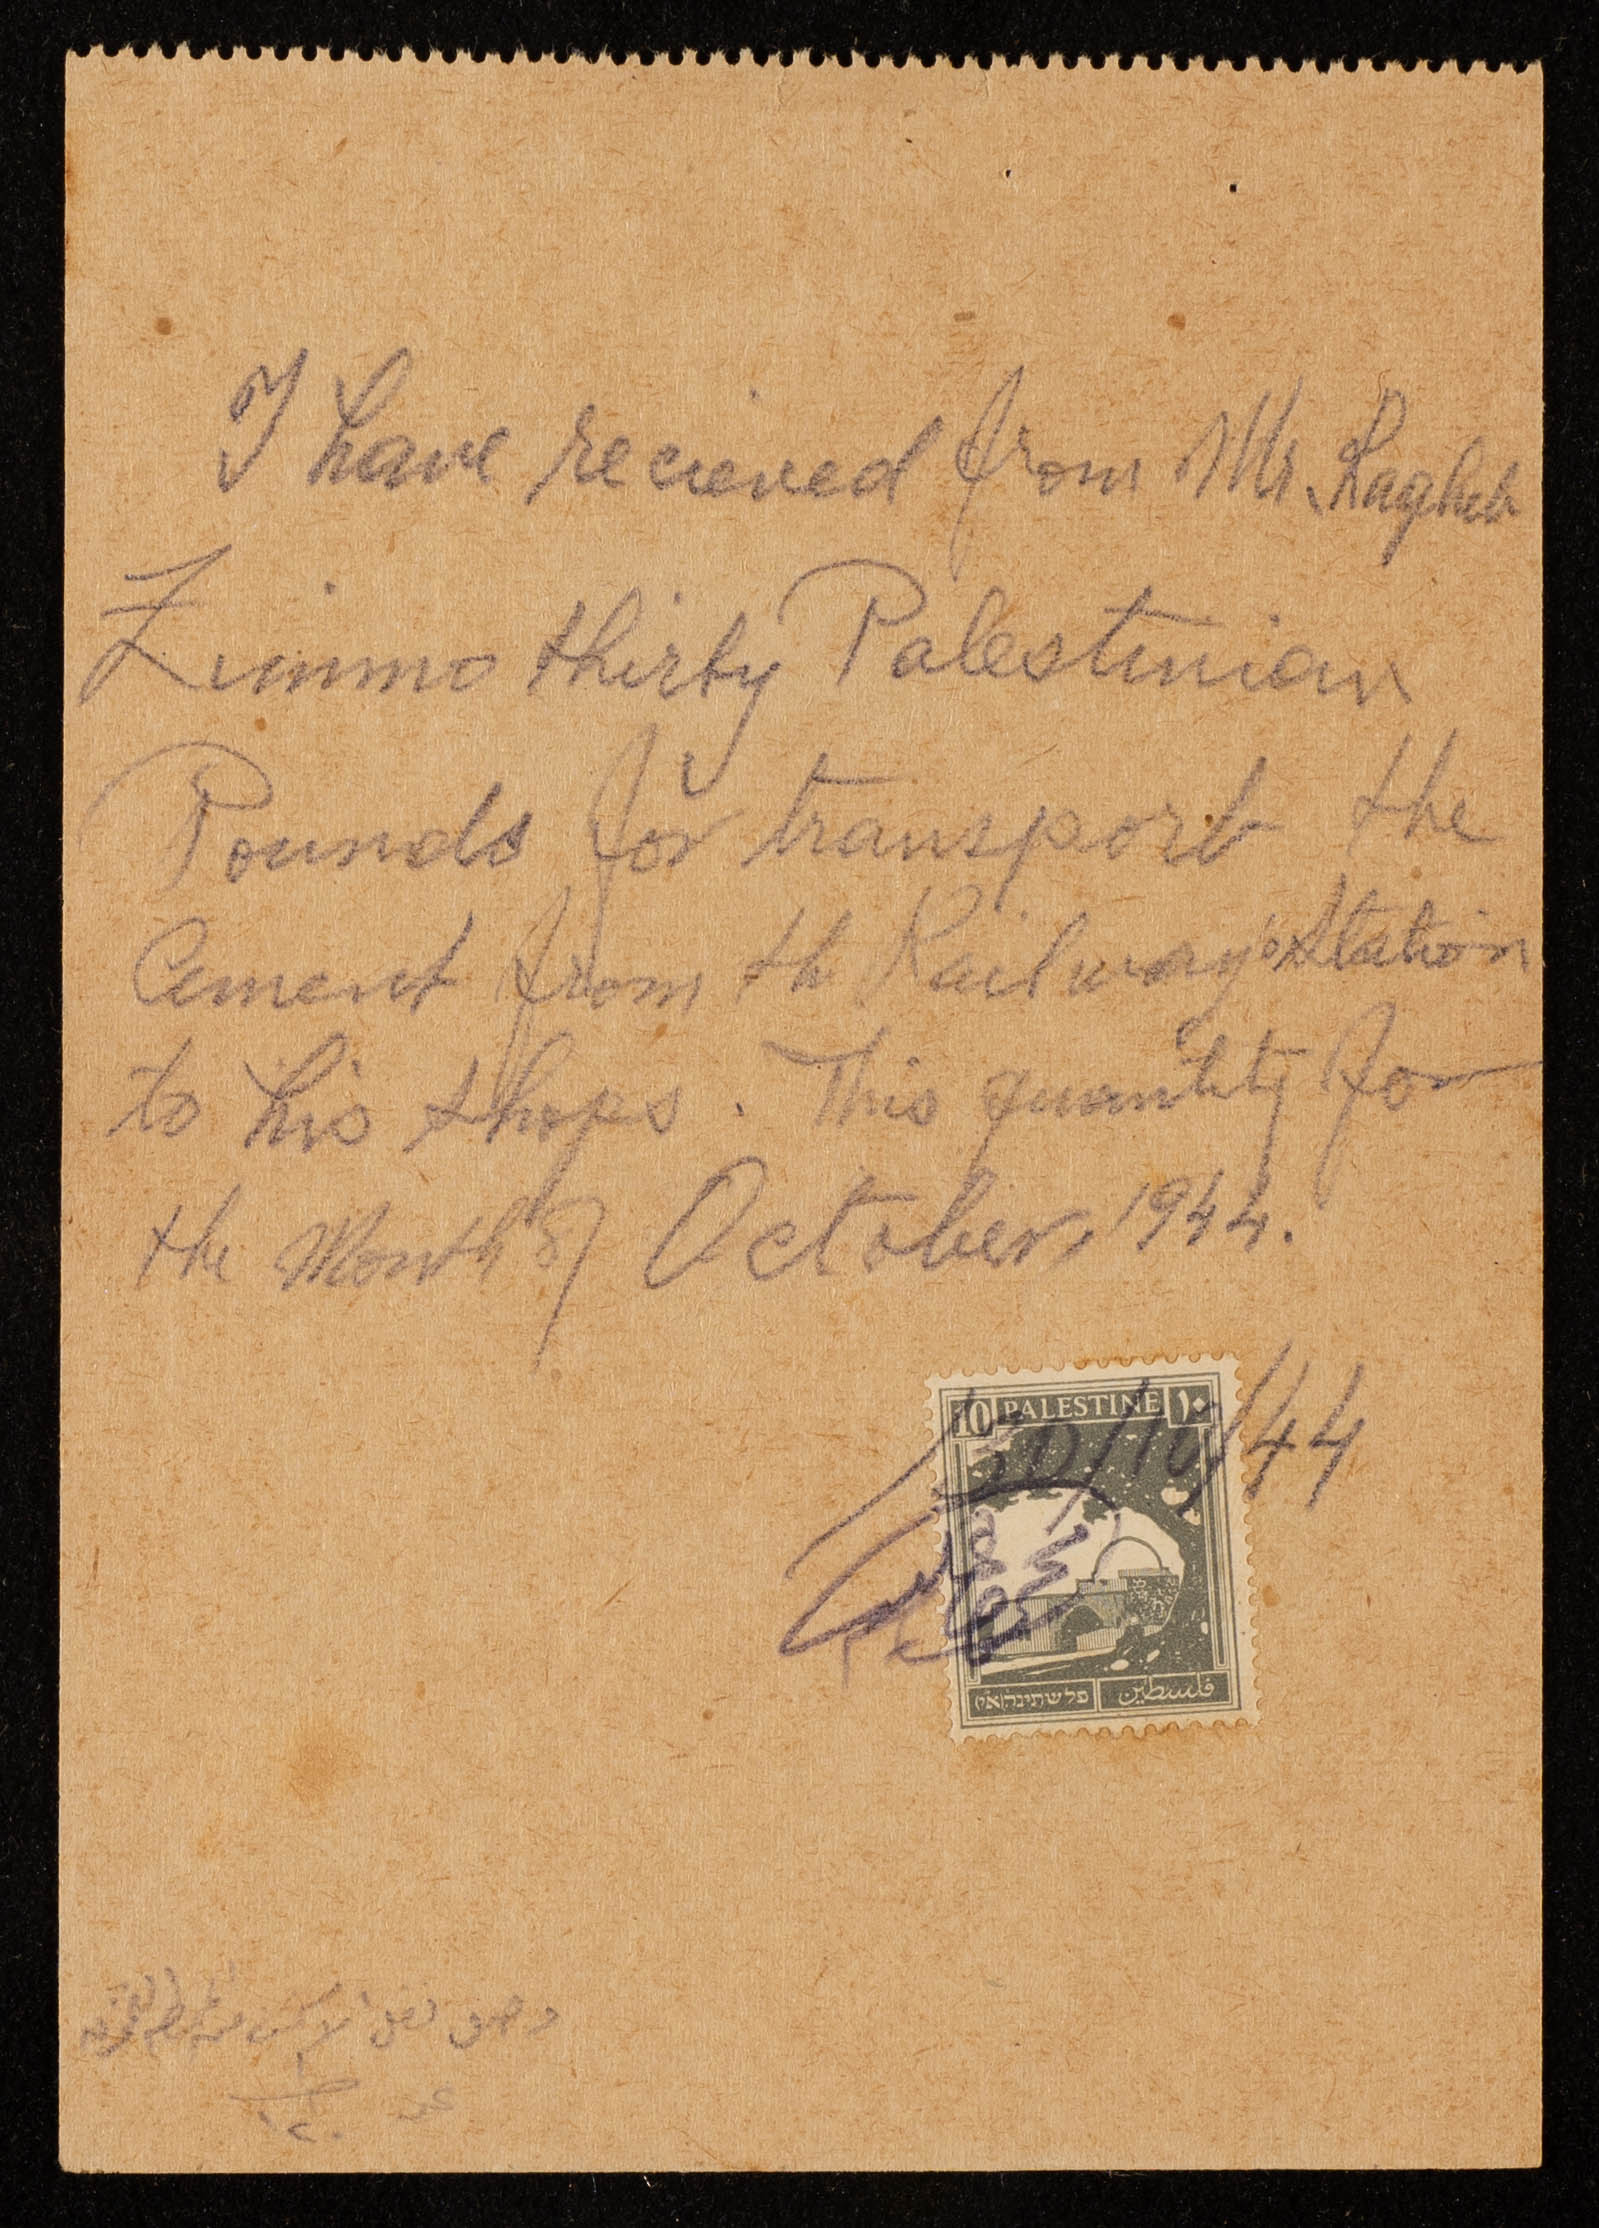 I have recieved from Mr. Ragheb
Zimmo thirty Palestinian
Pounds for transport the
Cement from th Railway's station
to his shops. This quantity for
the Month of October, 1944.
30/10/44
10 PALESTINE ١٠
פלשתינה (א״י) فلسطين
وصل نقل